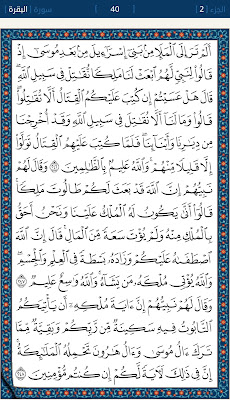 الجزء: 2 40 سورة: البقرة
أَلَمْ تَرَ إِلَى ٱلْمَلَإِ مِنۢ بَنِىٓ إِسْرَٰٓءِيلَ مِنۢ بَعْدِ مُوسَىٰٓ إِذْ
قَالُوا۟ لِنَبِىٍّ لَّهُمُ ٱبْعَثْ لَنَا مَلِكًا نُّقَٰتِلْ فِى سَبِيلِ ٱللَّهِ
قَالَ هَلْ عَسَيْتُمْ إِن كُتِبَ عَلَيْكُمُ ٱلْقِتَالُ أَلَّا تُقَٰتِلُوا۟
قَالُوا۟ وَمَا لَنَآ أَلَّا نُقَٰتِلَ فِى سَبِيلِ ٱللَّهِ وَقَدْ أُخْرِجْنَا
مِن دِيَٰرِنَا وَأَبْنَآئِنَا فَلَمَّا كُتِبَ عَلَيْهِمُ ٱلْقِتَالُ تَوَلَّوْا۟
إِلَّا قَلِيلًا مِّنْهُمْ وَٱللَّهُ عَلِيمٌۢ بِٱلظَّٰلِمِينَ ٢٤٦ وَقَالَ لَهُمْ
نَبِيُّهُمْ إِنَّ ٱللَّهَ قَدْ بَعَثَ لَكُمْ طَالُوتَ مَلِكًا
قَالُوٓا۟ أَنَّىٰ يَكُونُ لَهُ ٱلْمُلْكُ عَلَيْنَا وَنَحْنُ أَحَقُّ
بِٱلْمُلْكِ مِنْهُ وَلَمْ يُؤْتَ سَعَةً مِّنَ ٱلْمَالِ قَالَ إِنَّ ٱللَّهَ
ٱصْطَفَىٰهُ عَلَيْكُمْ وَزَادَهُۥ بَسْطَةً فِى ٱلْعِلْمِ وَٱلْجِسْمِ
وَٱللَّهُ يُؤْتِى مُلْكَهُۥ مَن يَشَآءُ وَٱللَّهُ وَٰسِعٌ عَلِيمٌ ٢٤٧
وَقَالَ لَهُمْ نَبِيُّهُمْ إِنَّ ءَايَةَ مُلْكِهِۦٓ أَن يَأْتِيَكُمُ
ٱلتَّابُوتُ فِيهِ سَكِينَةٌ مِّن رَّبِّكُمْ وَبَقِيَّةٌ مِّمَّا
تَرَكَ ءَالُ مُوسَىٰ وَءَالُ هَٰرُونَ تَحْمِلُهُ ٱلْمَلَٰٓئِكَةُ
إِنَّ فِى ذَٰلِكَ لَءَايَةً لَّكُمْ إِن كُنتُم مُّؤْمِنِينَ ٢٤٨